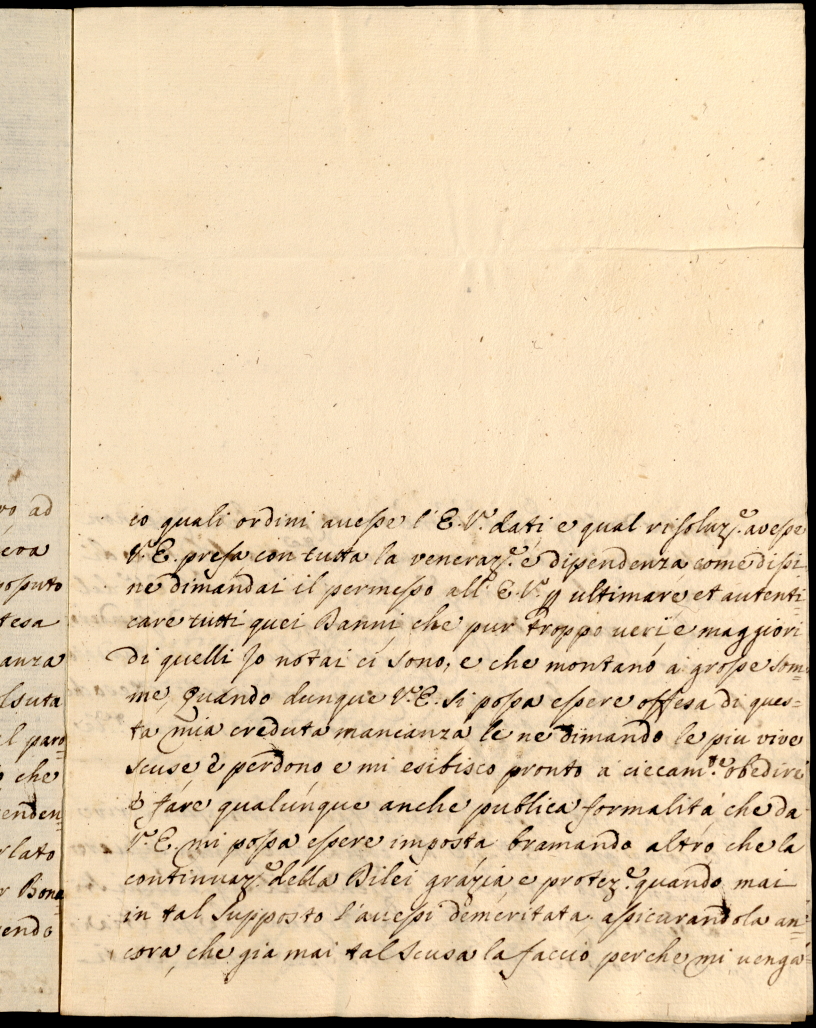 ro ad
posuto
tesa
anza
lsuta
el paro
o che
enden=
rlato
r Bona
endo
io quali ordini avesse l'E.V.ª dati e qual risoluz.e avesse
V.E. presa con tutta la veneraz.e e dipendenza come dissi
ne dimandai il permesso all'E.V.ª p ultimare et autenti=
care tutti quei Danni, che pur troppo veri, e maggiori
di quelli Jo notai ci sono, e che montano a grosse som=
me, Quando dunque V.E. si possa essere offesa di ques=
ta mia creduta mancanza le ne dimando le piu vive
scuse e perdono e mi esibisco pronto a ciecam.te obedire
e fare qualunque anche publica formalità che da
V.E. mi possa essere imposta bramando altro che la
continuaz.e della Dilei grazia e protez.e quando mai
in tal supposto l'avessi demeritata, assicurandola an=
cora, che gia mai tal scusa la faccio perche mi venga